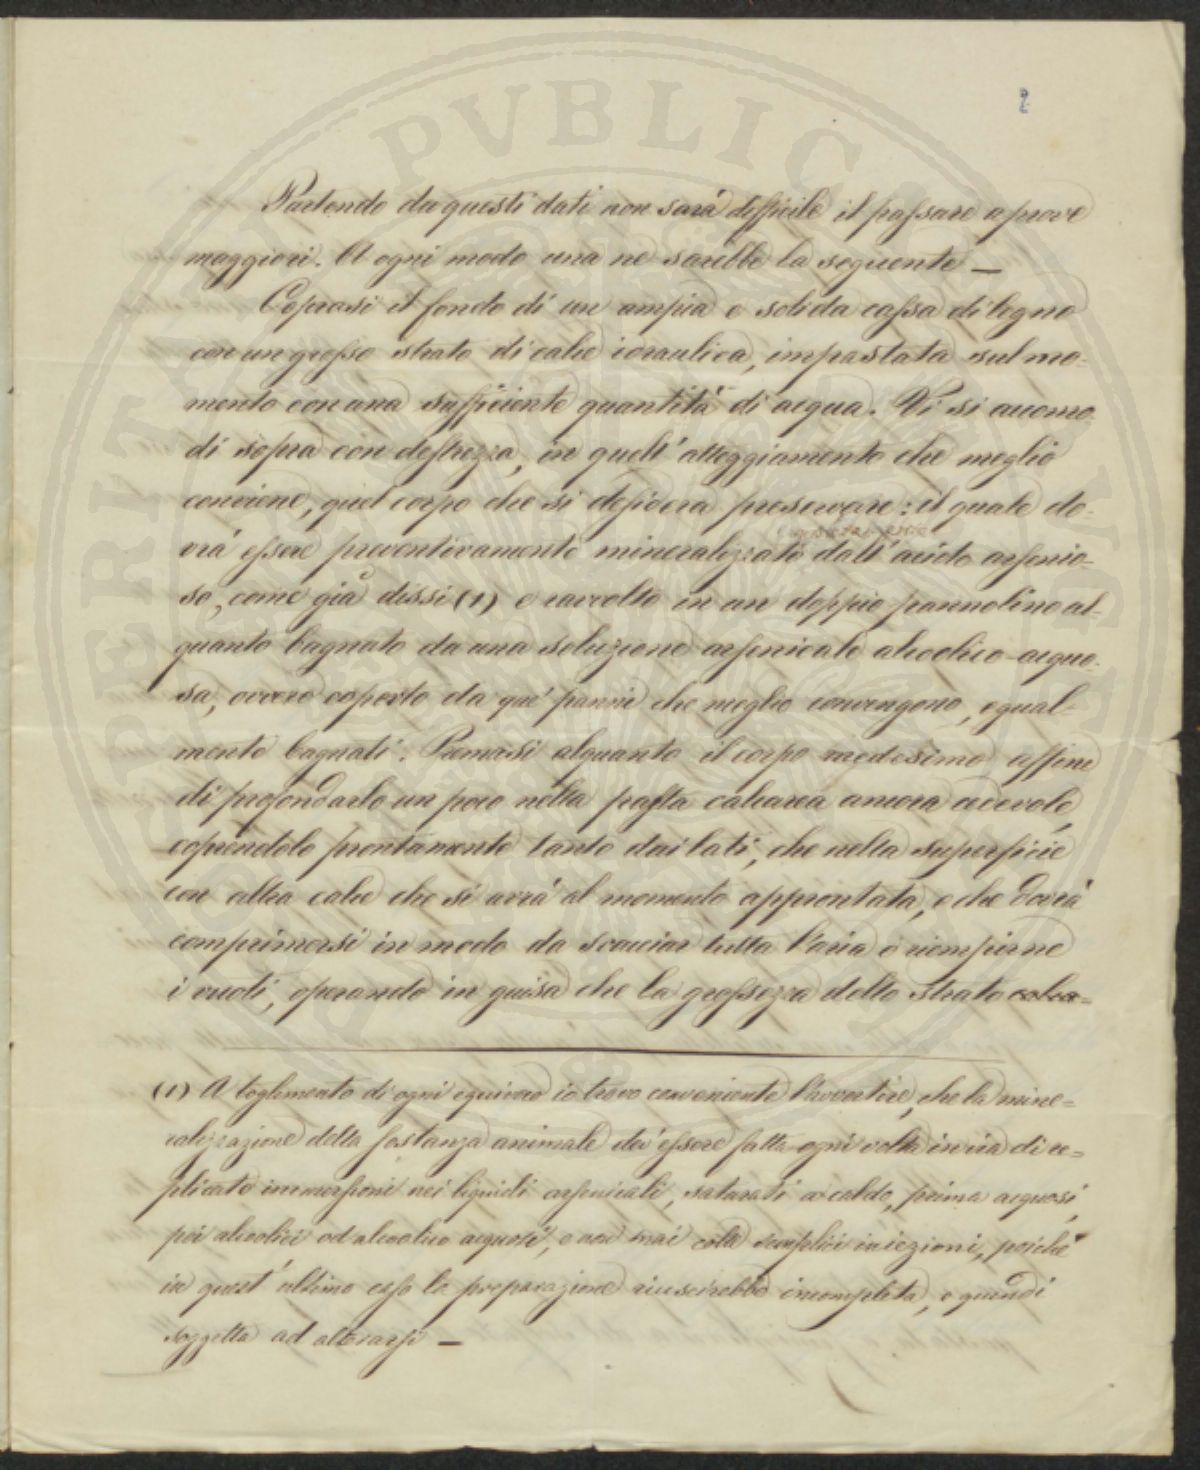 2
Partendo da questi dati non sarà difficile il passare a prove
maggiori. A ogni modo una ne sarebbe la seguente —
Coprasi il fondo di un ampia e solida cassa di legno
con un grosso strato di calce idraulica, impastata sul mo-
mento con una sufficiente quantità di acqua. Vi si accomo-
di sopra con destrezza, in quell'atteggiamento che meglio
conviene, quel corpo che si desidera preservare: il quale do-
vrà essere preventivamente mineralizzato dall'acido arsenio-
so, come già dissi (1) e raccolto in un doppio pannolino al-
quanto bagnato da una soluzione arsenicale alcoolico-acquo-
sa, ovvero coperto da que' panni che meglio convengono, egual-
mente bagnati. Premasi alquanto il corpo medesimo affine
di profondarlo un poco nella pasta calcarea ancora cedevole,
coprendolo prontamente tanto dai lati, che nella superficie
con altra calce che si avrà al momento approntata, e che dovrà
comprimersi in modo da scacciar tutta l'aria e riempirne
i vuoti, operando in guisa che la grossezza dello strato calca-
(1) A toglimento di ogni equivoco io trovo conveniente l'avvertire, che la mine-
ralizzazione della sostanza animale dev'essere fatta ogni volta in via di re-
plicate immersioni nei liquidi arsenicali, saturati a caldo, prima acquosi,
poi alcoolici od alcoolico acquosi, e non mai colle semplici iniezioni, poichè
in quest'ultimo caso la preparazione riuscirebbe incompleta, e quindi
soggetta ad alterarsi —
PERITAT PVBLICA